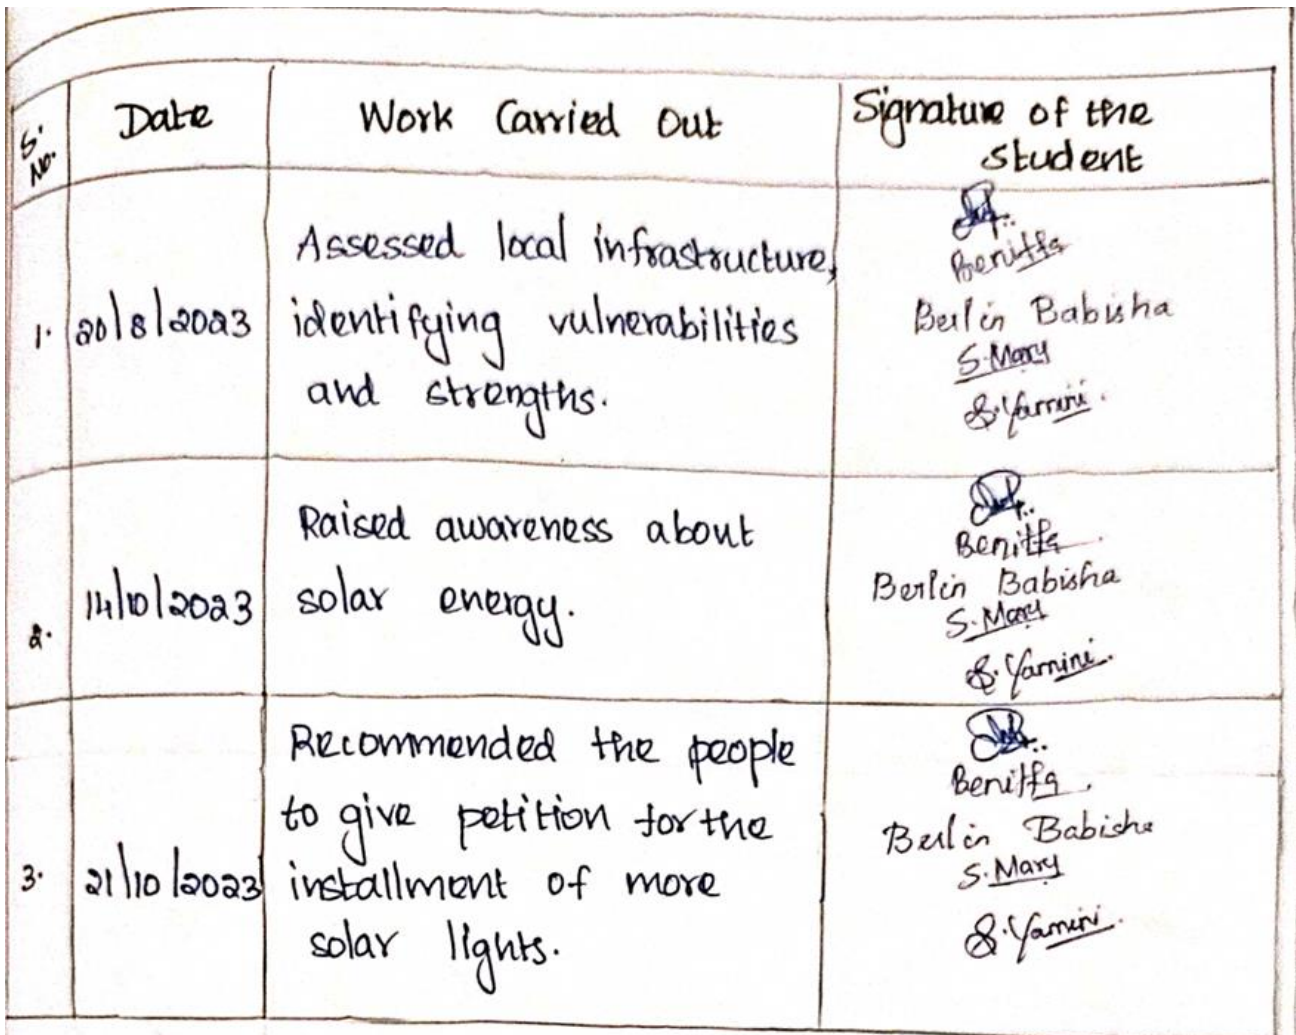 S. No.
Date
Work Carried Out
Signature of the
student
1.
20/8/2023
Assessed local infrastructure,
identifying vulnerabilities
and strengths.
Benitta
Berlin Babisha
S. Mary
S. Yamini.
2.
14/10/2023
Raised awareness about
solar energy.
Benitta
Berlin Babisha
S. Mary
S. Yamini.
3.
21/10/2023
Recommended the people
to give petition for the
installment of more
solar lights.
Benitta.
Berlin Babisha
S. Mary
S. Yamini.